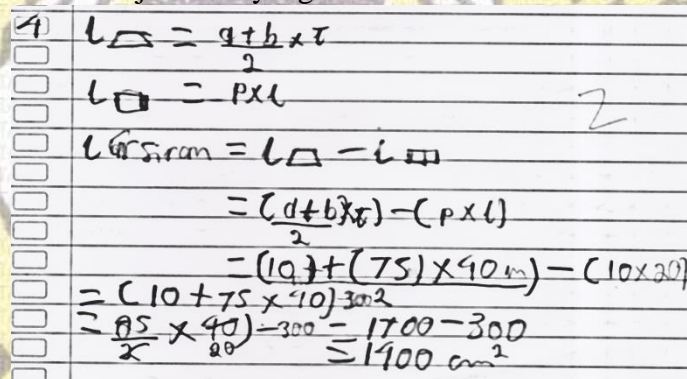 4 L⏢ = a+b/2 × t
L▭ = p×l
L arsiran = L⏢ − L▭
= (a+b/2 × t) − (p×l)
= (10)+(75)×40 m) − (10×20)
= (10+75×40) 300 2
= 85/2 × 40/20) − 300 = 1700−300
= 1400 cm²
2